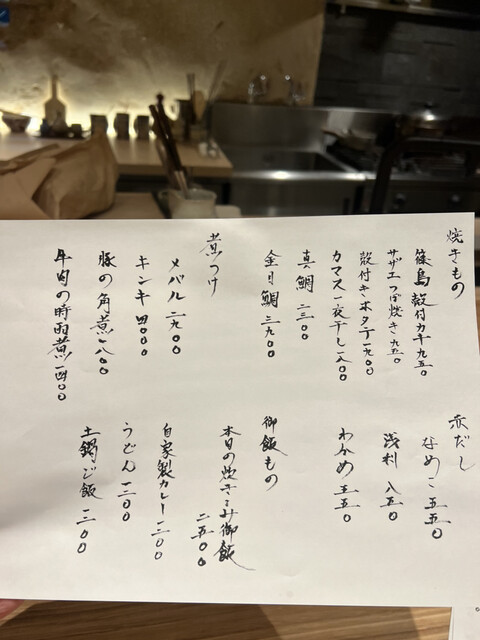 焼きもの
篠島殻付カキ九五〇
サザエつぼ焼き九五〇
殻付きホタテ一九〇〇
カマス一夜干し一八〇〇
真鯛二三〇〇
金目鯛三九〇〇
煮つけ
メバル二九〇〇
キンキ四〇〇〇
豚の角煮一八〇〇
牛肉の時雨煮一四〇〇
赤だし
なめこ五五〇
浅利八五〇
わかめ五五〇
御飯もの
本日の炊きこみ御飯
二五〇〇
自家製カレー一三〇〇
うどん一三〇〇
土鍋ご飯一三〇〇